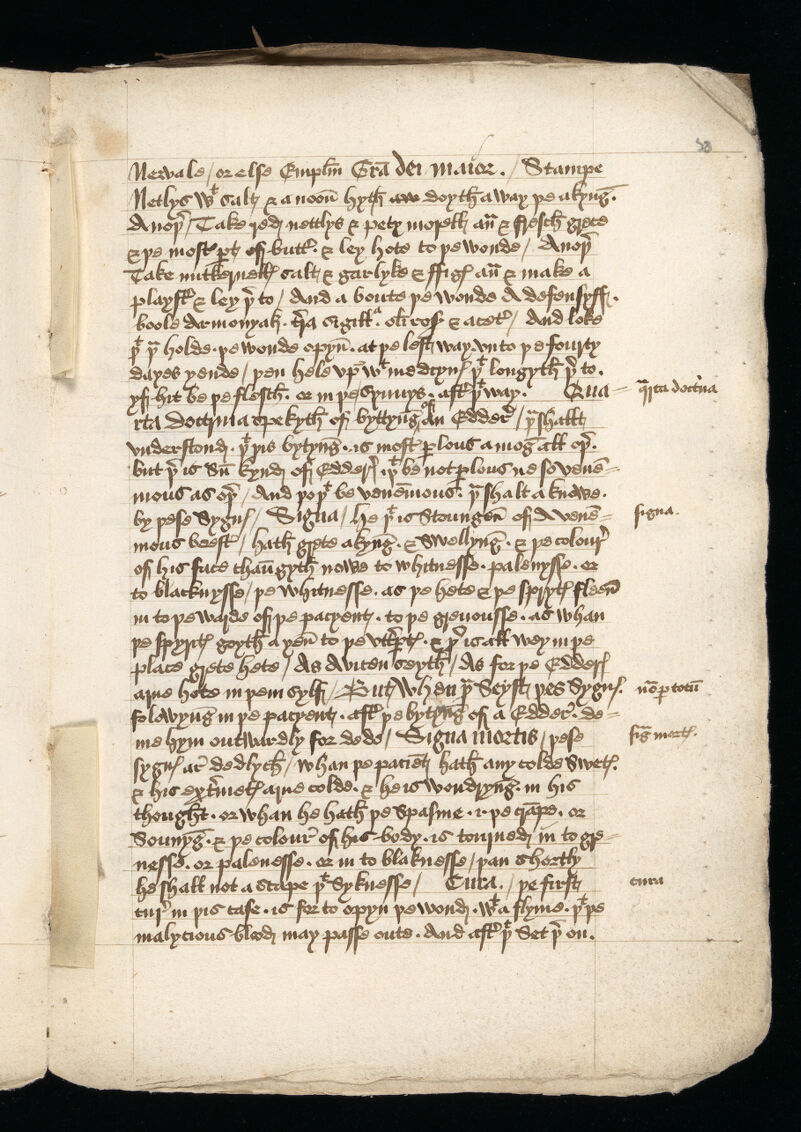 Nervale / or else Emplm̄ Grā dei maior . / Stampe
Netlys wt salt & a noon hyt doyth a way þe akynḡ .
Anoþ / Take red nettlys & pety morell an̄ & flesch grece
& þe most pt of butt & ley hote to þe wonde / Anoþ
Take nutkernell salt & garlyke & ffigs an̄ & make a
playst & ley þ to / And a boute þe wonde A defensyff .
boole Armonyak . t̄ra sigill . oli ros & acet / And loke
þt þu holde . þe wonde opyn . at þe lest way vnto þe fourty
dayes yende / þen hele vp wt medcyn þt longyth þ to .
yf hit be þe flesch . or in þe synuys . aft þt way . Qua=
rta Doctrina spekyth of byttyng of An Edder / þu shalt
vnderstond . þt þis bytynḡ . is most plous a mog all oþ .
but þ is Sū kynd of Edders . þt be not plous ne so venē=
mous as oþ / And yof be venēmous . þu shalt a knowe .
by þese Sygn / Signa / he þt is Stoungen of A venē=
mous beest / hath grete akynḡ . & Swellynḡ . & þe colour
of his face chaūgyth nowe to whitnesse . palenysse . or
to blacknysse / þe whitnesse . as þe hete & þe spryt fleen
in to þe warde of þe pacyent . to þe grevousse . as whan
þe spyrit goyth a yen to þe vttpt . & þ is all wey in þe
place grete hete / As Avicen seyth / As for þe Edders
arne hote in þem sylf / But When þu Seyst þes Sygn .
folwynḡ in þe pacyent . aft þe bytynḡ of a Edder . de=
me hym outwardly for dede / Signa mortis / þese
sygn ar dedlych / whan þe pacient hath any colde Swet .
& his extmet arne colde . & he is wondryng . in his
thought . or whan he hath þe Spasme . i . þe crāpe . or
Sounyg̅ . & þe colour of his body . is tourned in to gre=
nesse . or palenesse . or in to blaknesse / þan shortly
he shall not a scape þt Syknesse / Cura . / þe first
cur in þis case . is for to opyn þe wond . wt a flyme . þt þe
malycious blod may passe oute . And aft þt Set þ on .
qrta doctrina
signa .
nō p totū
sig mort .
cura